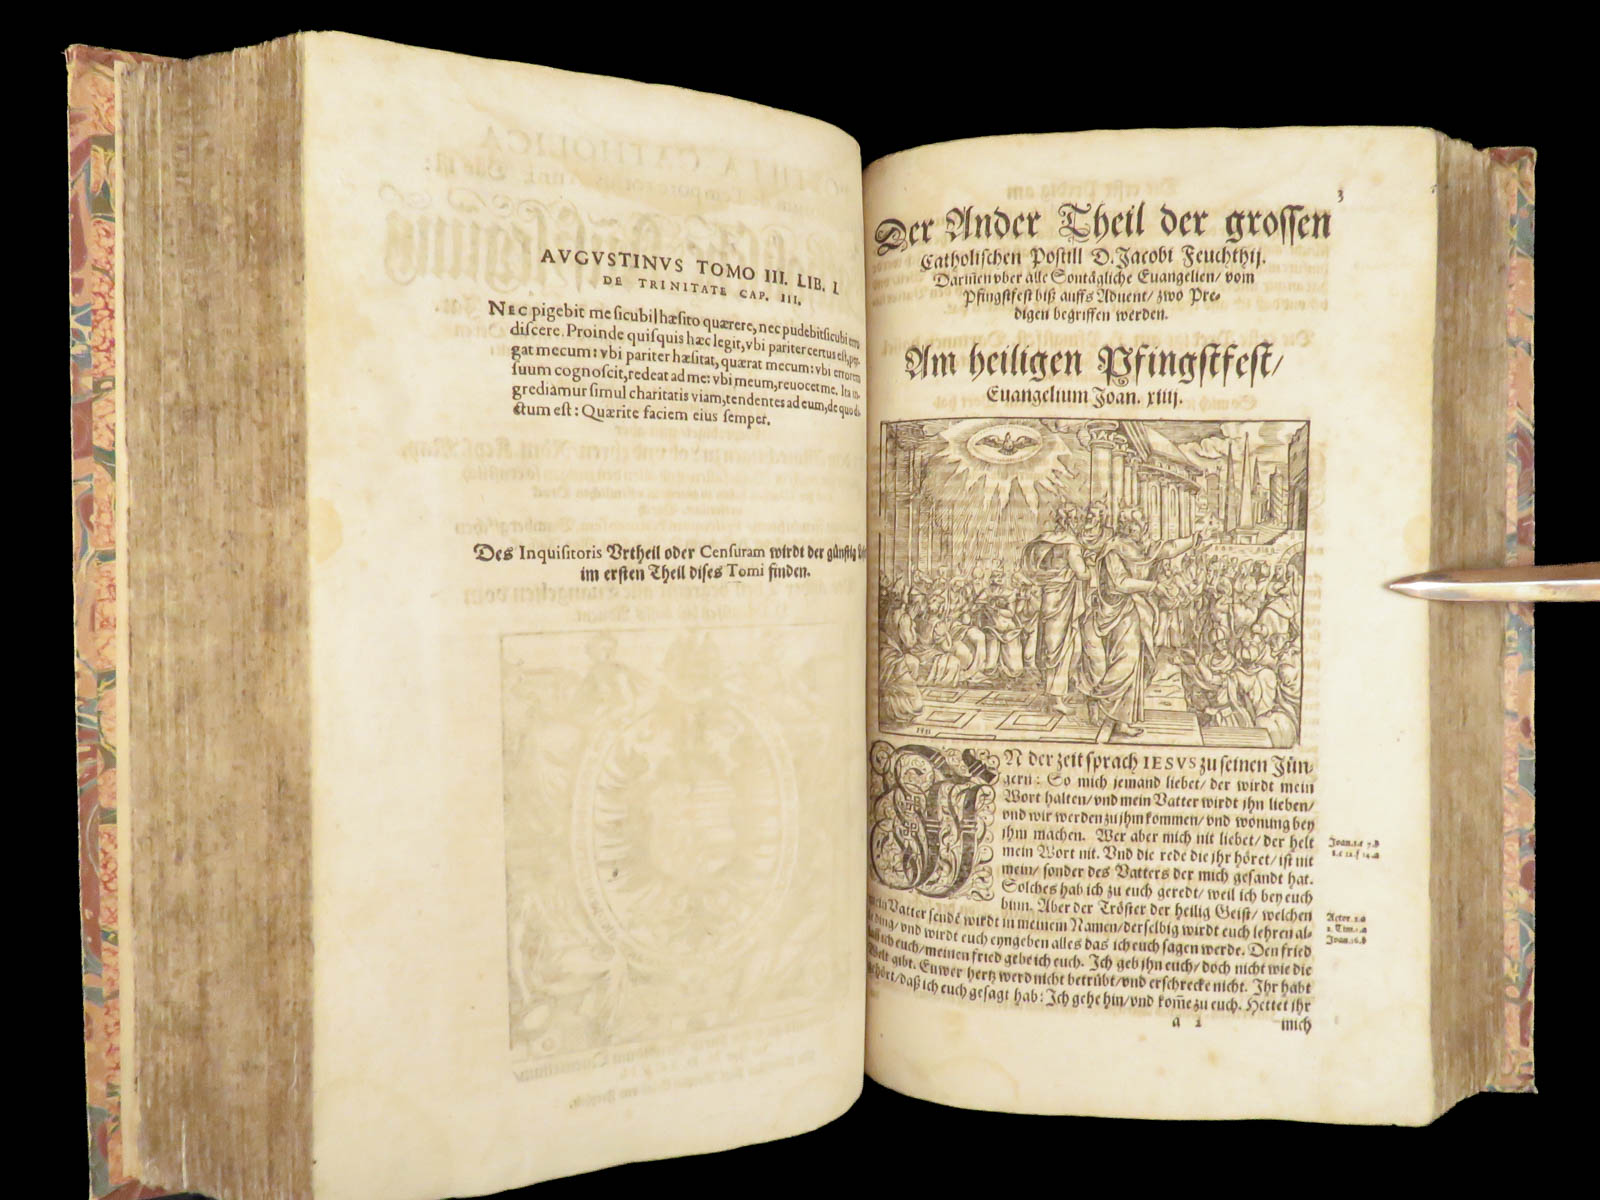 AVGVSTINVS TOMO III. LIB. I.
DE TRINITATE CAP. III.
NEC pigebit me sicubi hæsito quærere, nec pudebit sicubi erro
discere. Proinde quisquis hæc legit, vbi pariter certus est, per-
gat mecum: vbi pariter hæsitat, quærat mecum: vbi errorem
suum cognoscit, redeat ad me: vbi meum, reuocet me. Ita in-
grediamur simul charitatis viam, tendentes ad eum, de quo di-
ctum est: Quærite faciem eius semper.
Des Inquisitoris Vrtheil oder Censuram wirdt der günstig
im ersten Theil dises Tomi finden.
3
Der Ander Theil der grossen
Catholischen Postill D. Jacobi Feuchthij.
Dariñen vber alle Sontägliche Euangelien/ vom
Pfingstfest biß auffs Aduent/ zwo Pre-
digen begriffen werden.
Am heiligen Pfingstfest/
Euangelium Joan. xiiij.
IN der zeit sprach IESVS zu seinen Jün-
gern: So mich jemand liebet/ der wirdt mein
Wort halten/ vnd mein Vatter wirdt jhn lieben/
vnd wir werden zu jhm kommen/ vnd wonung bey
jhm machen. Wer aber mich nit liebet/ der helt
mein Wort nit. Vnd die rede die jhr höret/ ist nit
mein/ sonder des Vatters der mich gesandt hat.
Solches hab ich zu euch geredt/ weil ich bey euch
binn. Aber der Tröster der heilig Geist/ welchen
mein Vatter sendẽ wirdt in meinem Namen/ derselbig wirdt euch lehren al-
le ding/ vnd wirdt euch eyngeben alles das ich euch sagen werde. Den fried
laß ich euch/ meinen fried gebe ich euch. Ich geb jhn euch/ doch nicht wie die
Welt gibt. Euwer hertz werd nicht betrübt/ vnd erschrecke nicht. Ihr habt
gehört/ daß ich euch gesagt hab: Ich gehe hin/ vnd kom̃e zu euch. Hettet jhr
a 2 mich
Actor. 2.a
Joan. 16.b